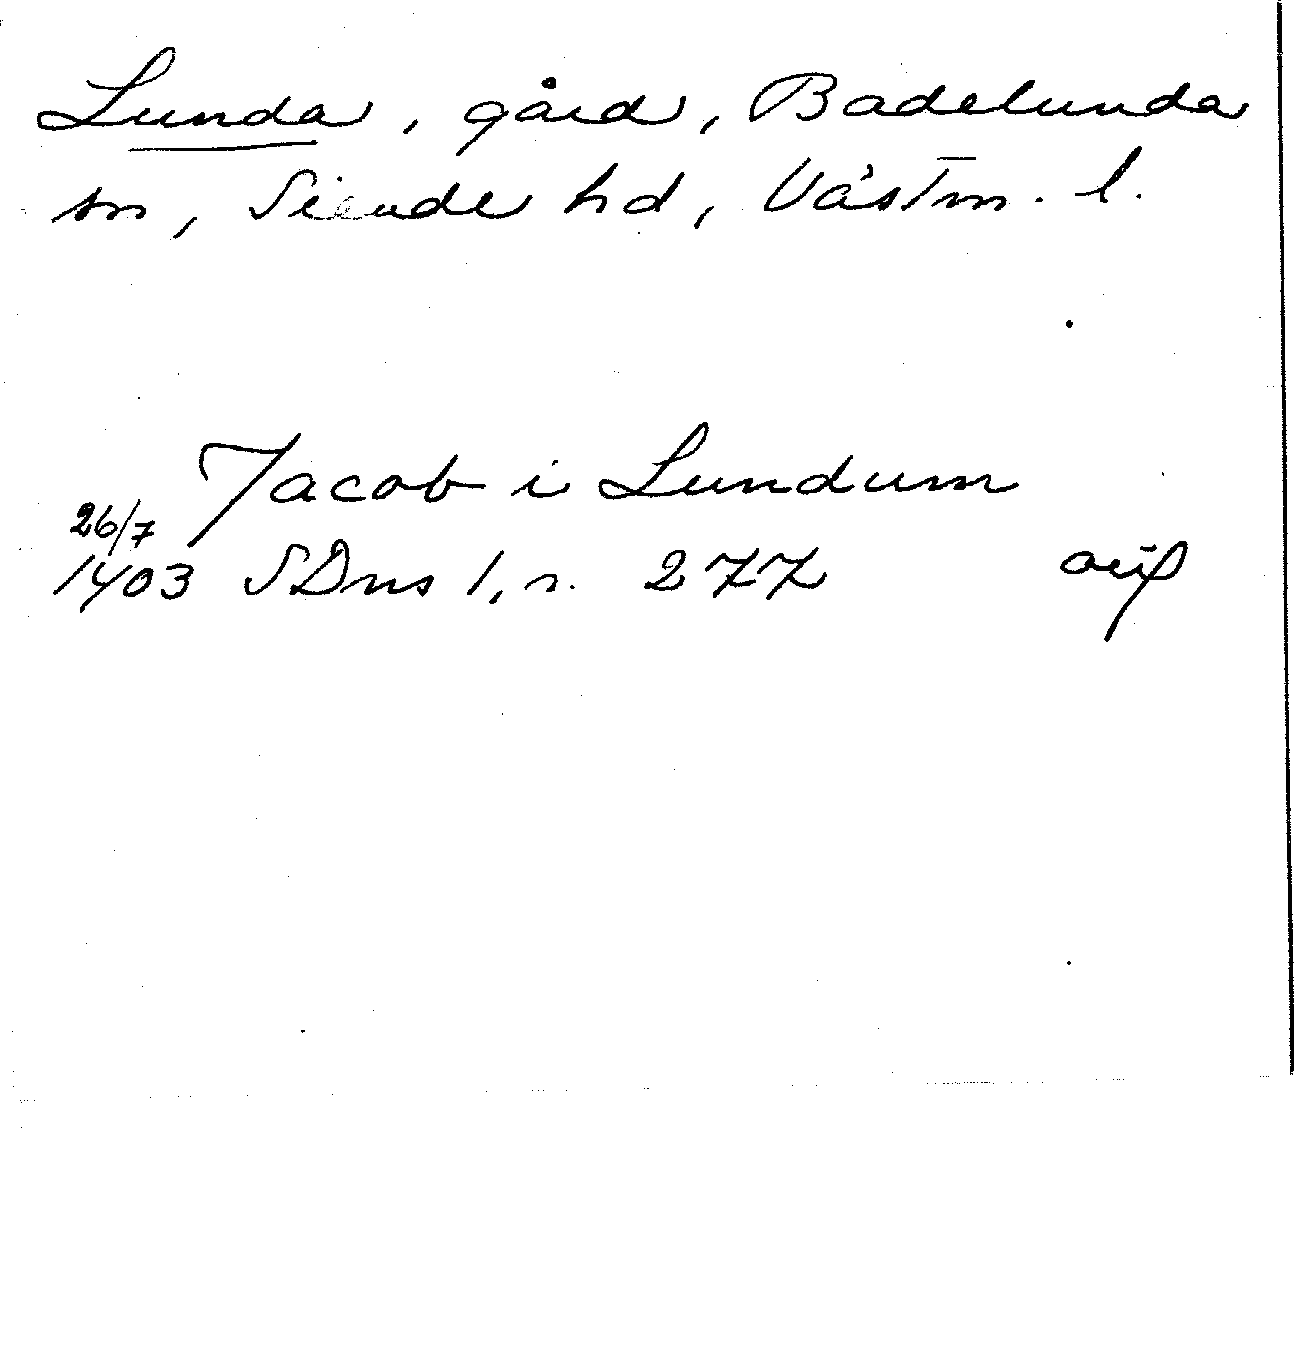 Lunda, gård, Badelunda
sn, Siende hd, Västm. l.
Jacob i Lundum
26/7
1403 SDns 1, n. 277